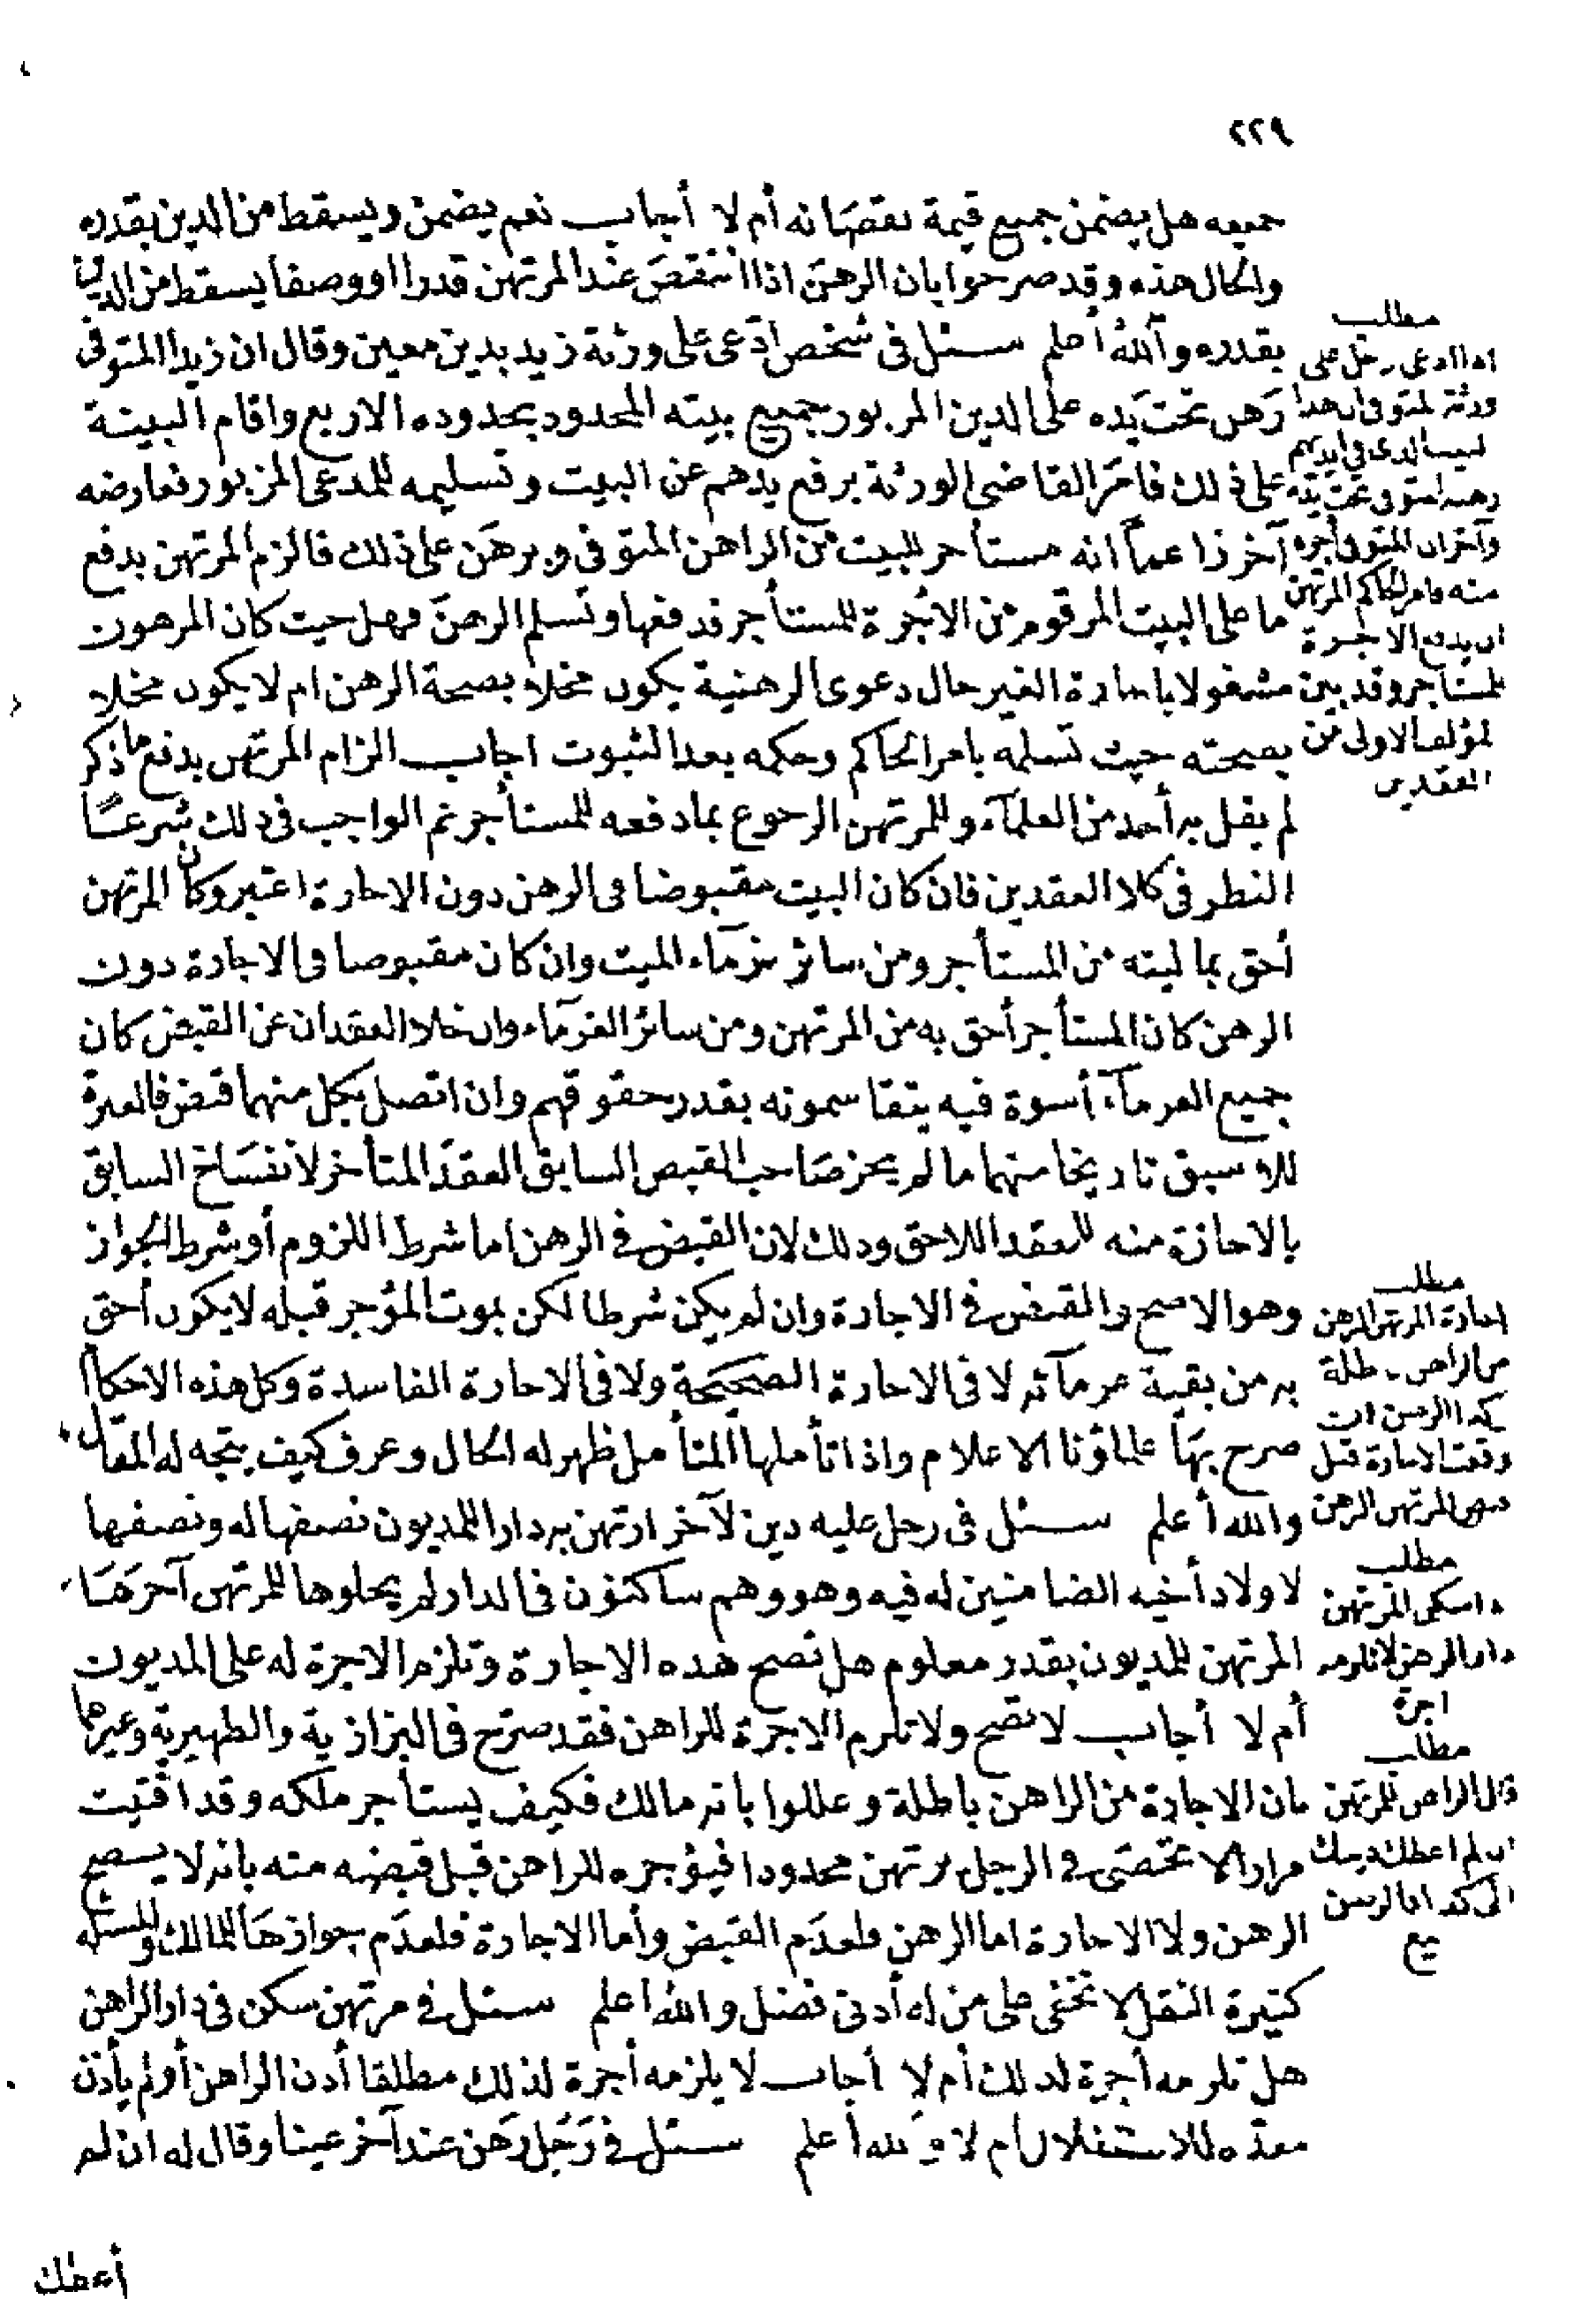 ٢٢٩
جميعه هل يضمن جميع قيمة نقصانه أم لا أجاب نعم يضمن ويسقط من الدين بقدره
والحال هذه وقد صرحوا بان الرهن اذا انتقص عند المرتهن قدرا او وصفا يسقط من الدين
بقدره والله أعلم سئل فى شخص ادّعى على ورثة زيد بدين معين وقال ان زيدا المتوفى
رهن تحت يده على الدين المزبور جميع بيته المحدود بحدوده الاربع واقام البينة
على ذلك فامر القاضى الورثة برفع يدهم عن البيت وتسليمه للمدعى المزبور فعارضه
آخر زاعما انه مستأجر للبيت من الراهن المتوفى وبرهن على ذلك فالزم المرتهن بدفع
ما على البيت المرقوم من الاجرة للمستأجر فدفعها وتسلم الرهن فهل حيث كان المرهون
مشغولا باجارة الغير حال دعوى الرهنية يكون مخلا بصحة الرهن ام لا يكون مخلا
بصحته حيث تسلمه بامر الحاكم وحكمه بعد الثبوت اجاب الزام المرتهن بدفع ما ذكر
لم يقل به أحد من العلمآء وللمرتهن الرجوع بما دفعه للمستأجر ثم الواجب فى ذلك شرعا
النظر فى كلا العقدين فان كان البيت مقبوضا فى الرهن دون الاجارة اعتبر وكان المرتهن
أحق بماليته من المستأجر ومن سائر غرمآء الميت وان كان مقبوضا فى الاجارة دون
الرهن كان المستأجر أحق به من المرتهن ومن سائر الغرمآء وان خلا العقدان عن القبض كان
جميع الغرمآء أسوة فيه يتقاسمونه بقدر حقوقهم وان اتصل بكل منهما قبض فالعبرة
للاسبق تاريخا منهما ما لم يجز صاحب القبض السابق العقد المتأخر لانفساخ السابق
بالاجازة منه للعقد اللاحق وذلك لان القبض فى الرهن اما شرط اللزوم أو شرط الجواز
وهو الاصح والقبض فى الاجارة وان لم يكن شرطا لكن بموت المؤجر قبله لا يكون أحق
به من بقية غرمآئه لا فى الاجارة الصحيحة ولا فى الاجارة الفاسدة وكل هذه الاحكام
صرح بها علماؤنا الاعلام واذا تأملها المتأمل ظهر له الحال وعرف كيف يتجه له المقال
والله أعلم سئل فى رجل عليه دين لآخر ارتهن به دارا للمديون نصفها له ونصفها
لاولاد أخيه الضامنين له فيه وهو وهم ساكنون فى الدار لم يخلوها للمرتهن آجرها
المرتهن للمديون بقدر معلوم هل تصح هذه الاجارة وتلزم الاجرة له على المديون
أم لا أجاب لا تصح ولا تلزم الاجرة للراهن فقد صرّح فى البزازية والظهيرية وغيرهما
بان الاجارة من الراهن باطلة وعللوا بانه مالك فكيف يستأجر ملكه وقد افتيت
مرارا لا تحصى فى الرجل يرتهن محدودا فيؤجره للراهن قبل قبضه منه بانه لا يصح
الرهن ولا الاجارة اما الرهن فلعدم القبض وأما الاجارة فلعدم جوازها للمالك والمسئلة
كثيرة النقل لا تخفى على من له أدنى فضل والله اعلم سئل فى مرتهن سكن فى دار الراهن
هل تلزمه أجرة لذلك أم لا أجاب لا يلزمه أجرة لذلك مطلقا أذن الراهن أو لم يأذن
معدّه للاستغلال أم لا والله أعلم سئل فى رجل رهن عند آخر عينا وقال له ان لم
أعطك
مطلب
اذا ادعى رجل على
ورثة المتوفى ان هذا
البيت الذى فى ايديهم
رهنه المتوفى تحت يده
وآخر ان المتوفى أجره
منه فامر الحاكم المرتهن
ان يدفع الاجرة
للمستأجر وقد بين
المؤلف الاولى من
العقدين
مطلب
اجارة المرتهن الرهن
من الراهن باطلة
كذا الرهن ان
وقعت الاجارة قبل
قبض المرتهن الرهن
مطلب
اذا سكن المرتهن
دار الرهن لا تلزمه
اجرة
مطلب
قال الراهن للمرتهن
ان لم اعطك دينك
الى كذا فالرهن
بيع